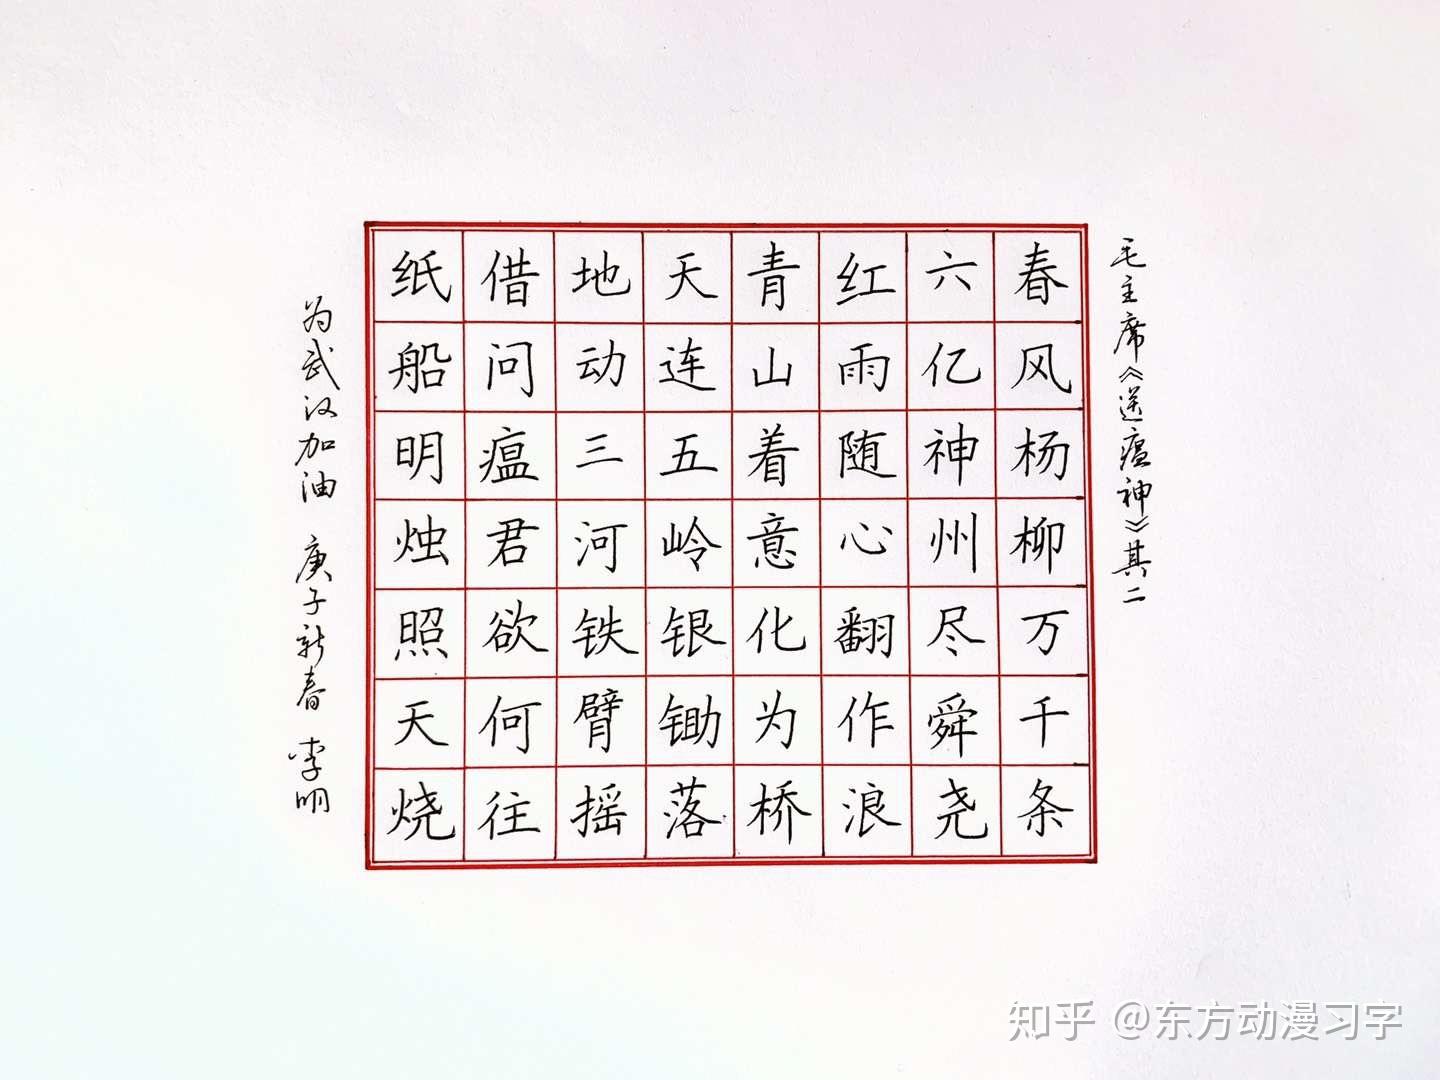 毛主席《送瘟神》其二
春风杨柳万千条
六亿神州尽舜尧
红雨随心翻作浪
青山着意化为桥
天连五岭银锄落
地动三河铁臂摇
借问瘟君欲何往
纸船明烛照天烧
为武汉加油 庚子新春 李明
知乎 @东方动漫习字